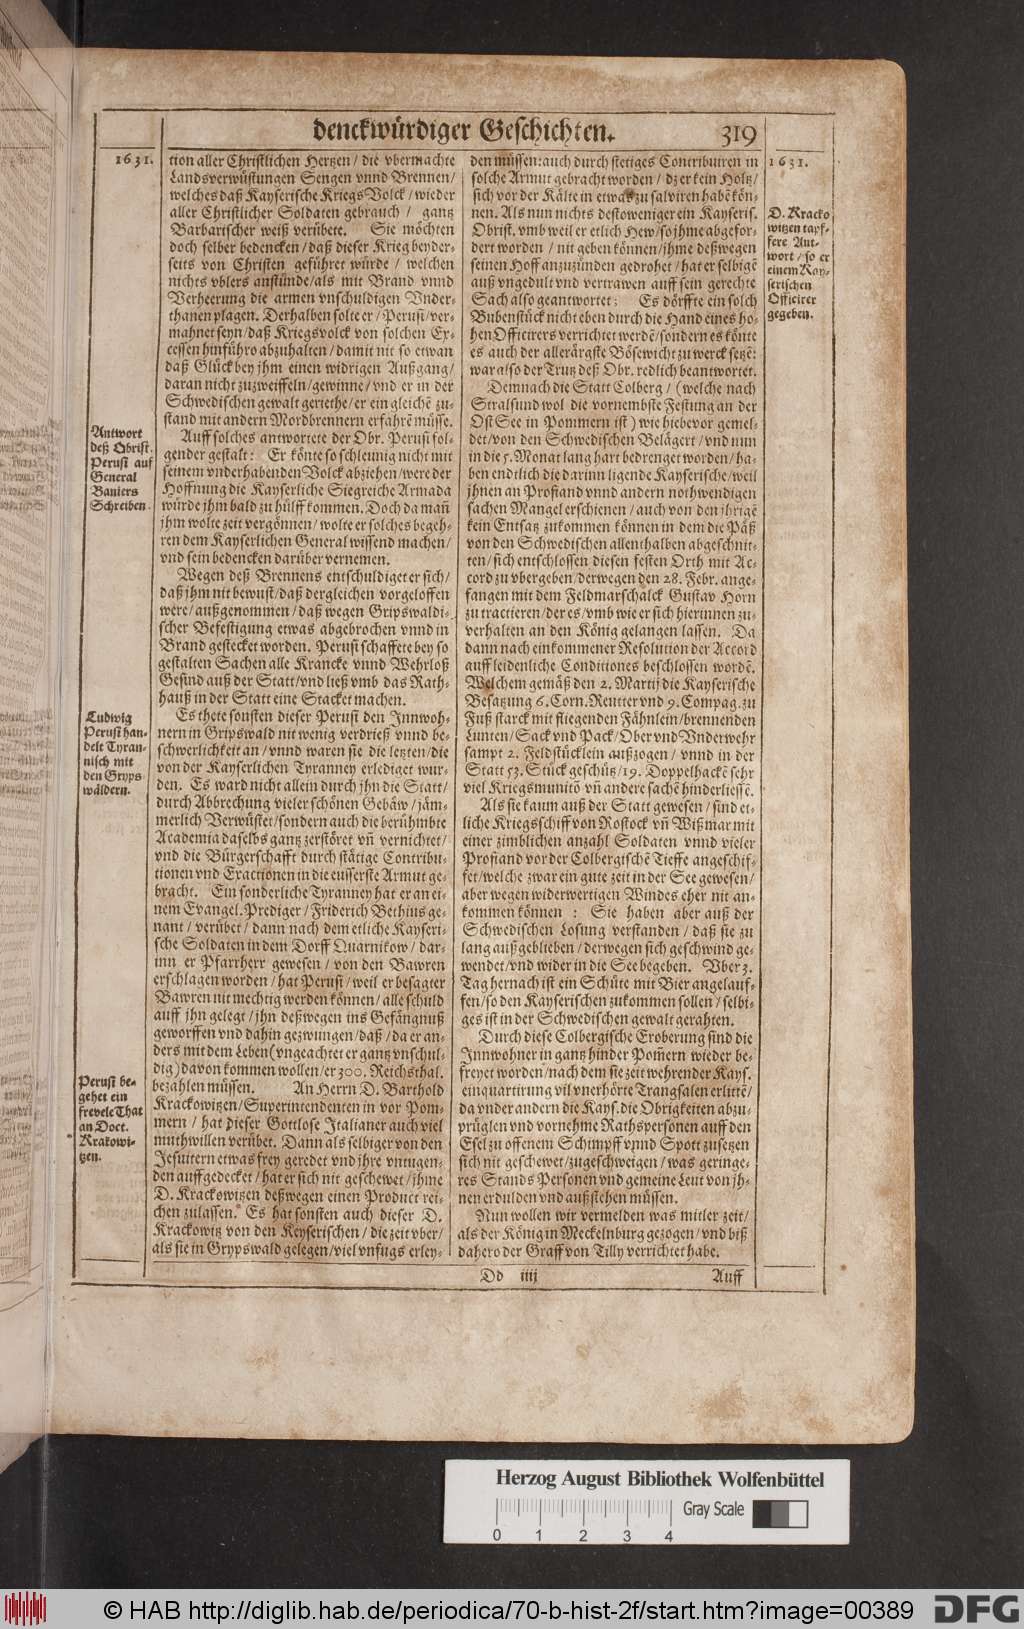 denckwürdiger Geschichten.
319
1631.
tion aller Christlichen Hertzen / die vbermachte
Landsverwüstungen Sengen vnnd Brennen /
welches daß Kayserische Kriegs Volck / wieder
aller Christlicher Soldaten gebrauch / gantz
Barbarischer weiß verübete. Sie möchten
doch selber bedencken / daß dieser Krieg beyder-
seits von Christen geführet würde / welchen
nichts vblers anstünde / als mit Brand vnnd
Verheerung die armen vnschuldigen Vnder-
thanen plagen. Derhalben solte er / Perusi / ver-
mahnet seyn / daß Kriegsvolck von solchen Ex-
cessen hinführo abzuhalten / damit nit so etwan
daß Glück bey jhm einen widrigen Außgang /
daran nicht zuzweiffeln / gewinne / vnd er in der
Schwedischen gewalt geriethe / er ein gleichẽ zu-
stand mit andern Mordbrennern erfahrẽ müsse.
Antwort
deß Obrist.
Perusi auf
General
Baniers
Schreiben.
Auff solches antwortete der Obr. Perusi fol-
gender gestalt: Er könte so schleunig nicht mit
seinem vnderhabenden Volck abziehen / were der
Hoffnung die Kayserliche Siegreiche Armada
würde jhm bald zu hülff kommen. Doch da mañ
jhm wolte zeit vergönnen / wolte er solches begeh-
ren dem Kayserlichen General wissend machen /
vnd sein bedencken darüber vernemen.
Wegen deß Brennens entschuldiget er sich /
daß jhm nit bewust / daß dergleichen vorgeloffen
were / außgenommen / daß wegen Gripswaldi-
scher Befestigung etwas abgebrochen vnnd in
Brand gestecket worden. Perusi schaffete bey so
gestalten Sachen alle Krancke vnnd Wehrloß
Gesind auß der Statt / vnd ließ vmb das Rath-
hauß in der Statt eine Stacket machen.
Ludwig
Perusi han-
delt Tyran-
nisch mit
den Gryps
wäldern.
Es thete sonsten dieser Perusi den Innwoh-
nern in Gripswald nit wenig verdrieß vnnd be-
schwerlichkeit an / vnnd waren sie die letzten / die
von der Kayserlichen Tyranney erlediget wur-
den. Es ward nicht allein durch jhn die Statt /
durch Abbrechung vieler schönen Gebäw / jäm-
merlich Verwüstet / sondern auch die berühmbte
Academia daselbs gantz zerstöret vñ vernichtet /
vnd die Bürgerschafft durch stätige Contribu-
tionen vnd Exactionen in die eusserste Armut ge-
bracht. Ein sonderliche Tyranney hat er an ei-
nem Evangel. Prediger / Friderich Bethius ge-
nant / verübet / dann nach dem etliche Kayseri-
sche Soldaten in dem Dorff Quarnikow / dar-
inn er Pfarrherr gewesen / von den Bawren
erschlagen worden / hat Perusi / weil er besagter
Bawren nit mechtig werden können / alle schuld
auff jhn gelegt / jhn deßwegen ins Gefängnuß
geworffen vnd dahin gezwungen / daß / da er an-
ders mit dem Leben (vngeachtet er gantz vnschul-
dig) davon kommen wollen / er 300. Reichsthal.
bezahlen müssen. An Herrn D. Barthold
Krackowitzen / Superintendenten in vor Pom-
mern / hat dieser Gottlose Italianer auch viel
muthwillen verübet. Dann als selbiger von den
Jesuitern etwas frey geredet vnd jhre vntugen-
den auffgedecket / hat er sich nit geschewet / jhme
D. Krackowitzen deßwegen einen Product rei-
chen zulassen. Es hat sonsten auch dieser D.
Krackowitz von den Keyserischen / die zeit vber /
als sie in Grypswald gelegen / viel vnfugs erley-
Perusi be-
gehet ein
frevele That
an Doct.
Krakowi-
tzen.
den müssen: auch durch stetiges Contribuiren in
solche Armut gebracht worden / dz er kein Holtz /
sich vor der Kälte in etwas zu salviren habẽ kön-
nen. Als nun nichts destoweniger ein Kayseris.
Obrist. vmb weil er etlich Hew / so jhme abgefor-
dert worden / nit geben können / jhme deßwegen
seinen Hoff anzuzünden gedrohet / hat er selbigẽ
auß vngedult vnd vertrawen auff sein gerechte
Sach also geantwortet: Es dörffte ein solch
Bubenstück nicht eben durch die Hand eines ho-
hen Officirers verrichtet werdẽ / sondern es könte
es auch der allerärgste Bösewicht zu werck setzẽ:
war also der Trutz deß Obr. redlich beantwortet.
1631.
D. Kracko
witzen tapf-
fere Ant-
wort / so er
einem Kay-
serischen
Officirer
gegeben.
Demnach die Statt Colberg / (welche nach
Stralsund wol die vornembste Festung an der
Ost See in Pommern ist) wie hiebevor gemel-
det / von den Schwedischen Belägert / vnd nun
in die 5. Monat lang hart bedrenget worden / ha-
ben endtlich die darinn ligende Kayserische / weil
jhnen an Profiand vnnd andern nothwendigen
sachen Mangel erschienen / auch von den jhrigẽ
kein Entsatz zukommen können in dem die Päß
von den Schwedischen allenthalben abgeschnit-
ten / sich entschlossen diesen festen Orth mit Ac-
cord zu vbergeben / derwegen den 28. Febr. ange-
fangen mit dem Feldmarschalck Gustav Horn
zu tractieren / der es / vmb wie er sich hierinnen zu-
verhalten an den König gelangen lassen. Da
dann nach einkommener Resolution der Accord
auff leidenliche Conditiones beschlossen wordẽ.
Welchem gemäß den 2. Martij die Kayserische
Besatzung 6. Corn. Reutter vnd 9. Compag. zu
Fuß starck mit fliegenden Fähnlein / brennenden
Lunten / Sack vnd Pack / Ober vnd Vnderwehr
sampt 2. Feldstücklein außzogen / vnnd in der
Statt 53. Stück geschütz / 19. Doppelhackẽ sehr
viel Kriegsmunitõ vñ andere sachẽ hinderliessẽ.
Als sie kaum auß der Statt gewesen / sind et-
liche Kriegsschiff von Rostock vñ Wißmar mit
einer zimblichen anzahl Soldaten vnnd vieler
Profiand vor der Colbergischẽ Tieffe angeschif-
fet / welche zwar ein gute zeit in der See gewesen /
aber wegen widerwertigen Windes eher nit an-
kommen können : Sie haben aber auß der
Schwedischen Losung verstanden / daß sie zu
lang außgeblieben / derwegen sich geschwind ge-
wendet / vnd wider in die See begeben. Vber 3.
Tag hernach ist ein Schüte mit Bier angelauf-
fen / so den Kayserischen zukommen sollen / selbi-
ges ist in der Schwedischen gewalt gerahten.
Durch diese Colbergische Eroberung sind die
Innwohner in gantz hinder Pom̃ern wieder be-
freyet worden / nach dem sie zeit wehrender Kays.
einquartirung vil vnerhörte Trangsalen erlittẽ /
da vnder andern die Kays. die Obrigkeiten abzu-
prüglen vnd vornehme Rathspersonen auff den
Esel zu offenem Schimpff vnnd Spott zusetzen
sich nit geschewet / zugeschweigen / was geringe-
res Stands Personen vnd gemeine Leut von jh-
nen erdulden vnd außstehen müssen.
Nun wollen wir vermelden was mitler zeit /
als der König in Meckelnburg gezogen / vnd biß
dahero der Graff von Tilly verrichtet habe.
Dd iiij
Auff
Herzog August Bibliothek Wolfenbüttel
Gray Scale
0 1 2 3 4
© HAB http://diglib.hab.de/periodica/70-b-hist-2f/start.htm?image=00389
DFG